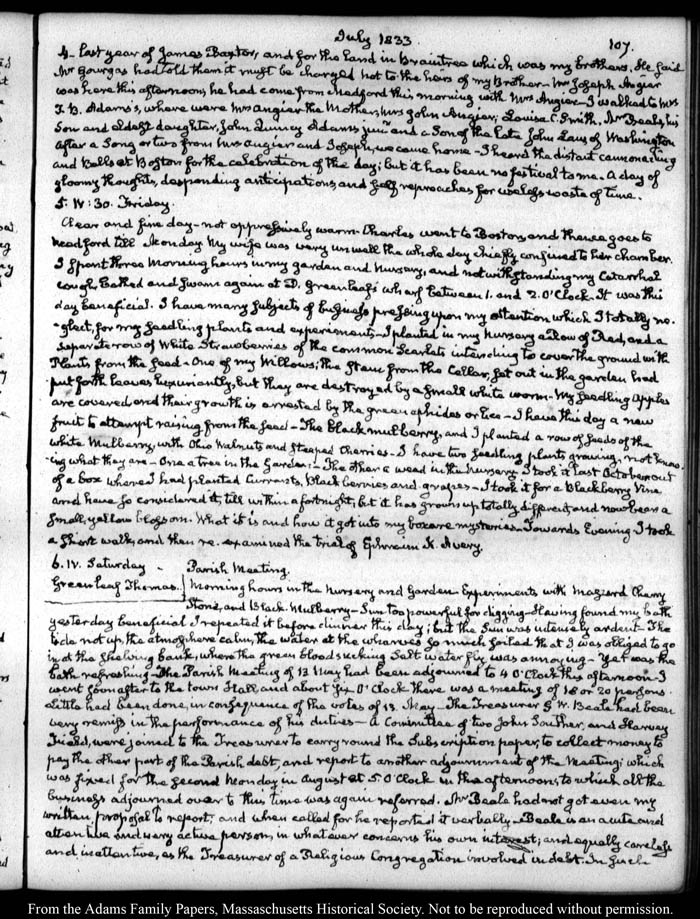 July 1833. 107.
4. last year of James Baxter, and for the land in Braintree which was my brothers. He said
Mr Gourgas had told them it must be charged not to the heirs of my Brother— Mr Joseph Angier
was here this afternoon, he had come from Medford this morning with Mrs Angier— I walked to Mrs
T. B. Adams's, where were Mrs Angier the Mother, Mrs John Angier, Louisa C. Smith, Mr Beale, his
Son and eldest daughter, John Quincy Adams junr and a Son of the late John Law of Washington
After a Song or two from Mrs Angier and Joseph, we came home— I heard the distant cannonading
and bells at Boston for the celebration of the day; but it has been no festival to me. A day of
gloomy thoughts, desponding anticipations, and self reproaches for useless waste of time.
5. IV:30. Friday.
Clear and fine day— not oppressively warm— Charles went to Boston, and thence goes to
Medford till Monday. My wife was very unwell the whole day chiefly confined to her chamber.
I spent three morning hours in my garden and Nursery, and notwithstanding my Catarrhal
cough, bathed and swam again at D. Greenleafs wharf between 1. and 2. O'Clock. It was this
day beneficial. I have many subjects of business pressing upon my attention which I totally ne-
-glect, for my seedling plants and experiments— I planted in my Nursery a Row of Red, and a
separate row of White Strawberries of the common Scarlets intending to cover the ground with
Plants from the seed— One of my Willows; the stem from the Cellar, set out in the garden had
put forth leaves luxuriantly, but they are destroyed by a small white worm— My seedling Apples
are covered and their growth is arrested by the green aphides or lice— I have this day a new
fruit to attempt raising from the seed— The black mulberry, and I planted a row of seeds of the
white Mulberry, with Ohio Walnuts and steeped Cherries— I have two seedling plants growing, not know-
-ing what they are— One a tree in the Garden— The other a weed in the Nursery I took it last October out
of a box where I had planted Currants, blackberries and grapes— I took it for a Blackberry Vine
and have so considered it, till within a fortnight, but it has grown up totally different and now bears a
small, yellow blossom. What it is and how it got into my box are mysteries. Towards Evening I took
a short walk, and then re-examined the trial of Ephraim K. Avery.
6. IV. Saturday— Parish Meeting.
Greenleaf Thomas. Morning hours in the Nursery and Garden— Experiments with Mazzard Cherry
Stones, and Black Mulberry— Sun too powerful for digging— Having found my bath
yesterday beneficial I repeated it before dinner this day; but the Sun was intensely ardent— The
tide not up, the atmosphere calm, the water at the wharves so much soiled that I was obliged to go
in at the shelving bank, where the green bloodsucking Salt water fly was annoying— Yet was the
bath refreshing— The Parish Meeting of 13 May had been adjourned to 4 O'Clock this afternoon— I
went soon after to the town Hall, and about six O'Clock there was a meeting of 18 or 20 persons.
Little had been done, in consequence of the votes of 13. May— The Treasurer G W. Beale had been
very remiss in the performance of his duties— A Committee of two John Souther, and Harvey
Field, were joined to the Treasurer to carry round the Subscription paper, to collect money to
pay the other part of the Parish debt, and report to another adjournment of the Meeting; which
was fixed for the second Monday in August at 5 O'Clock in the afternoon; to which all the
business adjourned over to this time was again referred. Mr Beale had not got even my
written proposal to report; and when called for he reported it verbally— Beale is an acute and
attentive and very active person, in whatever concerns his own interest; and equally careless
and inattentive, as the Treasurer of a Religious Congregation involved in debt. In such
From the Adams Family Papers, Massachusetts Historical Society. Not to be reproduced without permission.